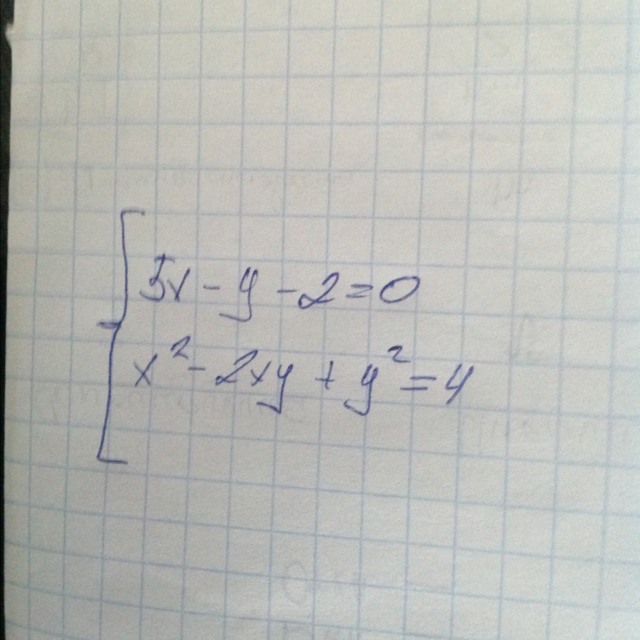 5x - y - 2 = 0
x² - 2xy + y² = 4